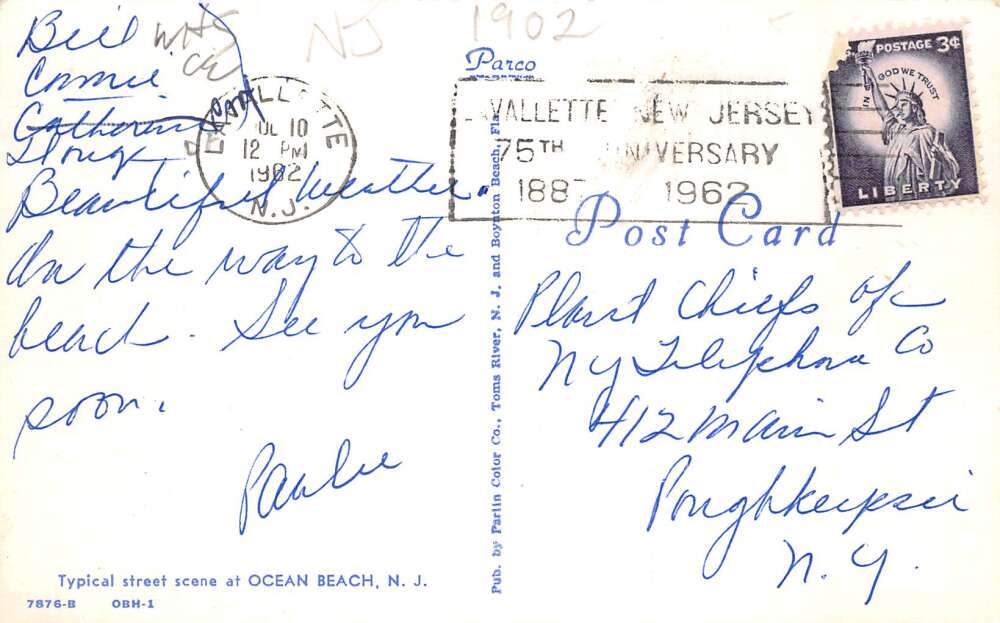 Bill
Connie
Catherine
Pam
Beautiful Weather.
On the way to the
beach. See you
soon.
Paulie
Typical street scene at OCEAN BEACH, N. J.
7876-B OBH-1
NJ
1902
LAVALLETTE
JUL 10
12 PM
1962
N.J.
Parco
LAVALLETTE NEW JERSEY
75TH ANNIVERSARY
1887 1962
POSTAGE 3¢
IN GOD WE TRUST
LIBERTY
Post Card
Pub. by Parlin Color Co., Toms River, N. J. and Boynton Beach, Fla.
Plant Chiefs Ofc
NY Telephone Co
412 Main St
Poughkeepsie
N.Y.